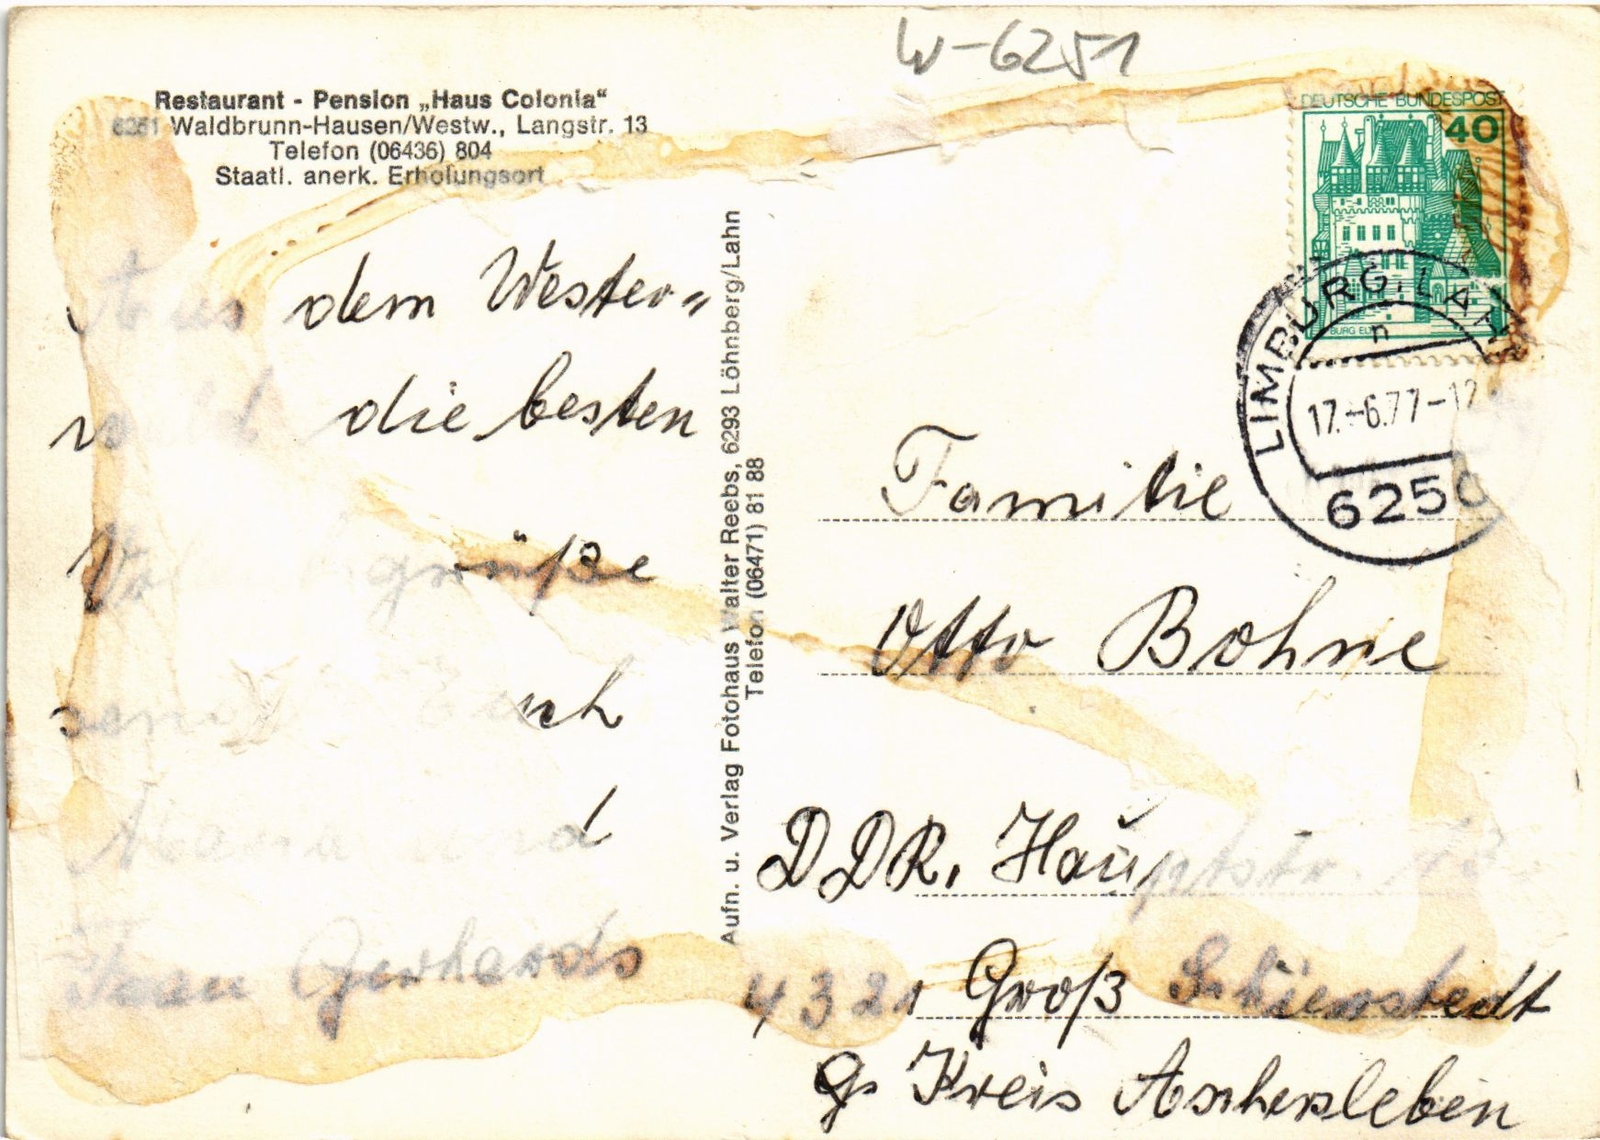 W-6251
Restaurant - Pension „Haus Colonia“
6251 Waldbrunn-Hausen/Westw., Langstr. 13
Telefon (06436) 804
Staatl. anerk. Erholungsort
DEUTSCHE BUNDESPOST
40
BURG ELTZ
LIMBURG, LAHN
n
17.-6.77-12
6250
Aus dem Wester=
wald die besten
grüße
senden Euch
Mama und
Frau Gerhards
Aufn. u. Verlag Fotohaus Walter Reebs, 6293 Löhnberg/Lahn
Telefon (06471) 81 88
Familie
Otto Bohne
DDR, Hauptstr.
4321 Groß Schierstedt
Kreis Aschersleben